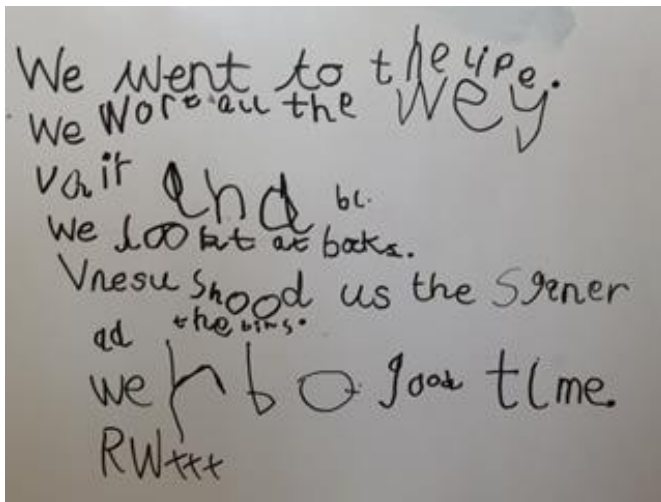 We went to the lipe.
We wort all the wey
vair and bc.
We lookt at books.
Vnesu shood us the Sganer
ad the bins.
we hb a good time.
RW